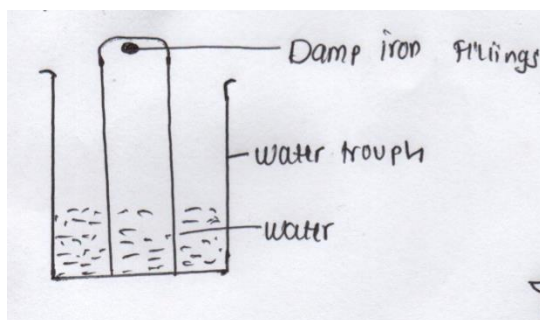 Damp iron Filings
water trough
water